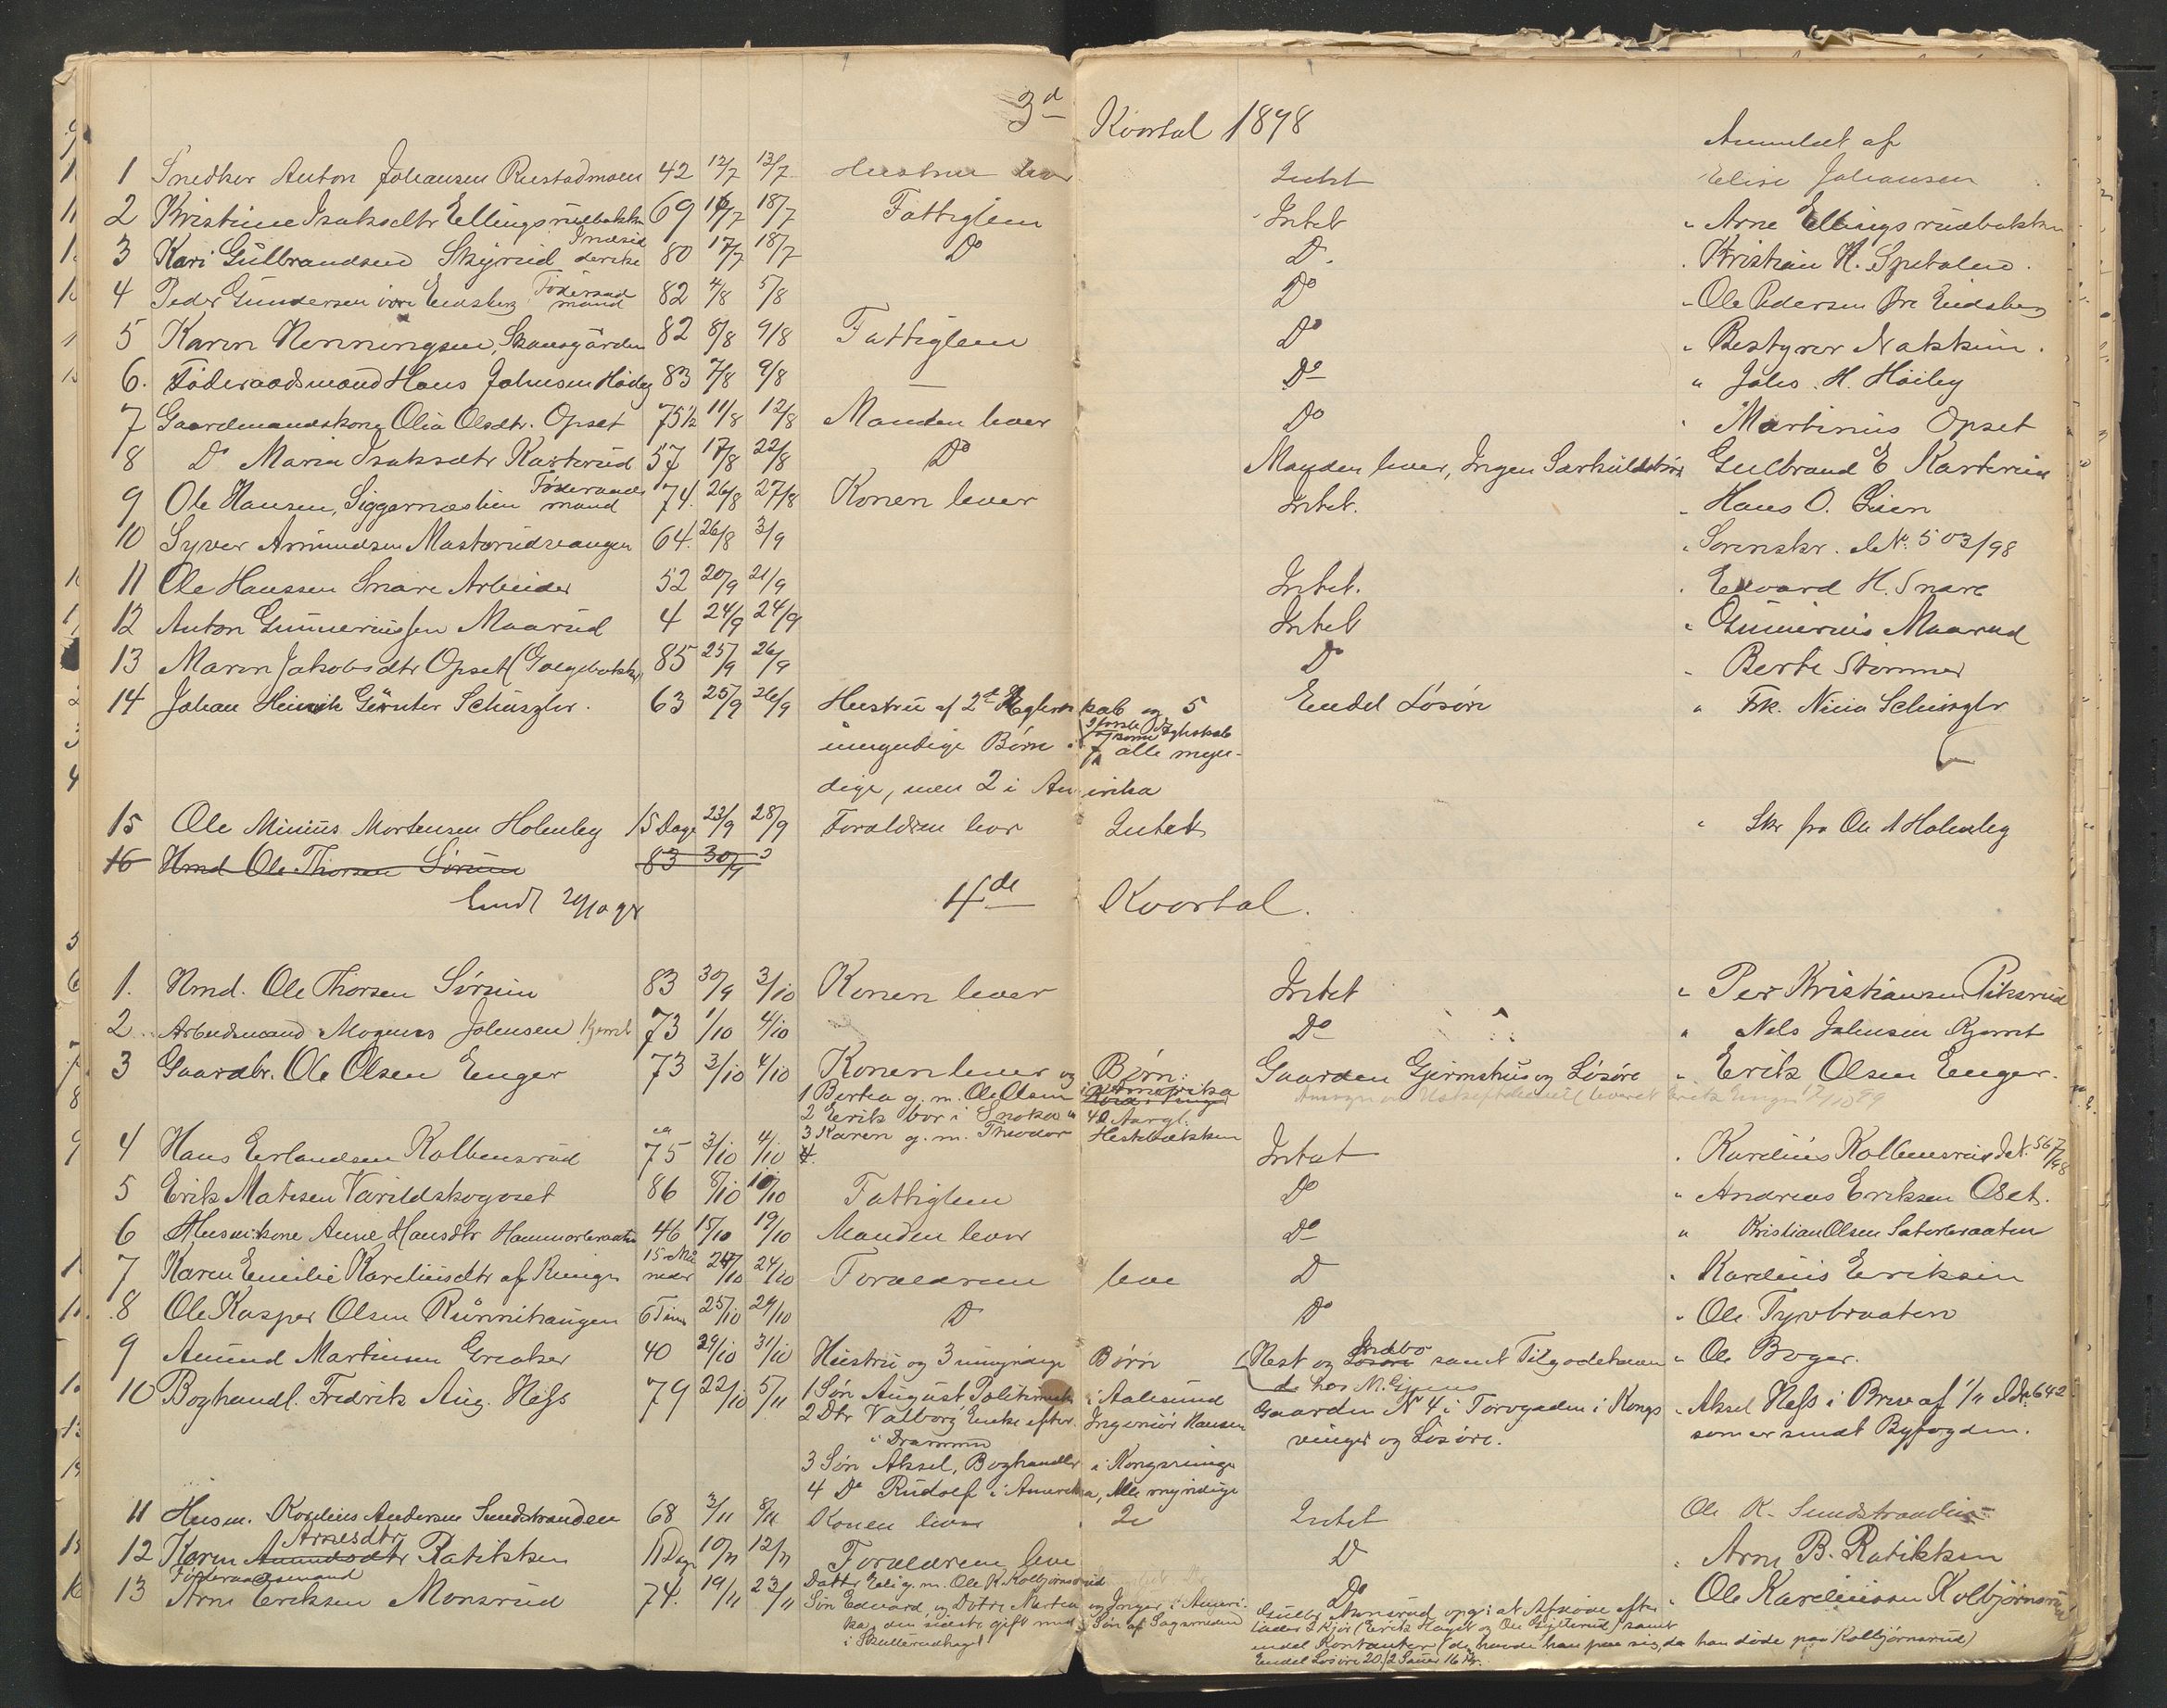 3d Kvartal 1898
Anmeldt af
1 Snedker Anton Johansen Rustadmoen 42 12/7 13/7 Hustru lever Intet Elise Johansen
2 Kristine Isaksdtr Ellingsrudbakken 69 14/7 18/7 Fattiglem Intet " Arne Ellingsrudbakken
3 Kari Gulbrandsen Skyrud Indsidderske 80 17/7 18/7 Do Do. " Kristian H. Spetalen.
4 Peder Gundersen øvre Eidsberg Føderaadmand 82 4/8 5/8 Do " Ole Pedersen Øre Eidsberg
5 Karen Henningsen, Skansgården 82 8/8 9/8 Fattiglem Do " Bestyrer Nakkim.
6. Føderaadsmand Hans Johnsen Høiby 83 7/8 9/8 — Do " Johs. H. Høiby
7 Gaardmandskone Olia Olsdtr. Opset 75½ 11/8 12/8 Manden lever Do " Martinius Opset
8 Do Maria Isaksdtr Karterud 57 17/8 22/8 Do Manden lever, Ingen Særkuldsbörn Gulbrand E Karterud
9 Ole Hansen, Siggernæslien Føderaadsmand 74. 26/8 27/8 Konen lever Intet. " Hans O. Lien
10 Syver Amundsen Masterudvangen 64. 26/8 3/9 " Sorenskr. No. 503/98
11 Ole Hanssen Snare Arbeider 52 20/9 21/9 Intet. " Edvard H. Snare
12 Anton Gunneriussen Maarud 4 24/9 24/9 Intet " Gunnerius Maarud
13 Maren Jakobsdtr Opset (Galgebakken) 85 25/9 26/9 Do " Berte Stömner
14 Johan Heinrik Günter Schüszler. 63 25/9 26/9 Hustru af 2det Ægteskab og 5 Endel Løsøre " Frk. Nina Schüszler
umyndige Börn i første Ægteskab 7 Börn alle myn-
dige, men 2 i Amerika
15 Ole Minius Mortensen Holenby 15 Dage 23/9 28/9 Forældren lever Intet " Skr fra Ole M Holenby
16 Hmd Ole Thorsen Sörum 83 30/9
Sendt 20/10 98
4de Kvartal.
1. Hmd. Ole Thorsen Sörum 83 30/9 3/10 Konen lever Intet " Per Kristiansen Piksrud
2. Arbeidsmand Magnus Johnsen Kjerret 73 1/10 4/10 Do " Nels Johnsen Kjerret
3 Gaardbr. Ole Olsen Enger 73 3/10 4/10 Konen lever og Börn: Gaarden Gjermshus og Løsøre " Erik Olsen Enger.
1 Bertea g. m. Ole Olsen i Amerika
2 Erik bor i 40 Aargl.
3 Karen g. m. Theodor Hestebækken
4 Hans Erlandsen Kolbensrud ca 75 3/10 4/10 4. Intet " Karelius Kolbensrud No. 567/98
5 Erik Matisen Varildskogoset 86 8/10 10/10 Fattiglem Do " Andreas Eriksen Oset.
6 Husm:kone Anne Hansdtr Hammerbraaten 46 15/10 19/10 Manden lever Do " Kristian Olsen Saterbraaten
7 Karen Emilie Kareliusdtr af Vinger 15 Maaneder 24/10 24/10 Forældrene leve D " Karelius Eriksen
8 Ole Kasper Olsen Rünnihaugen 6 Timer 25/10 29/10 D Do " Ole Tyrvbraaten
9 Amund Martinsen Greaker 40 29/10 31/10 Hustru og 3 umyndige Börn Hest og Indbo Løsøre samt Tilgodehavende hos M. " Ole Boger.
10 Boghandl. Fredrik Aug. Hess 79 22/10 5/11 1 Søn August Politimester i Aalesund Gaarden No 4 i Torvgaden i Kongs- " Aksel Hess i Brev af 1/11 No. 642
2 Dtr Valborg Enke efter Ingeniör Hansen vinger og Løsøre. som er sendt Byfogden.
i Drammen
3 Søn Aksel, Boghandler i Kongsvinger
4 Do Rudolf i Amerika, Alle myndige
11 Husm. Karelius Andersen Sundstranden 68 3/11 8/11 Konen lever Intet Ole K. Sundstranden
12 Karen Amundsdtr Arnesdtr Ratikken 11 Dage 10/11 12/11 Forældrene leve D " Arne B. Ratikken
13 Føderaadsmand Arne Eriksen Monsrud 74. 19/11 23/11 Datter Eli g. m. Ole K Kolbjørnsrud Do " Ole Kareliussen Kolbjørnsrud
Søn Edvard og Døtre Marthea og Inger i Ameri-
ka, den sidste gift med Søn af Sagsmeden
i Skullerudhaget
Monsrud opgi at Afdøde efter-
lader 2 Kjör (Erik Haget og Ole) samt
endel Kontanter (de havde han paa sig, da han døde paa Kolbjörnsrud)
Endel Løsøre 20./2 Sauer 16 Kr.